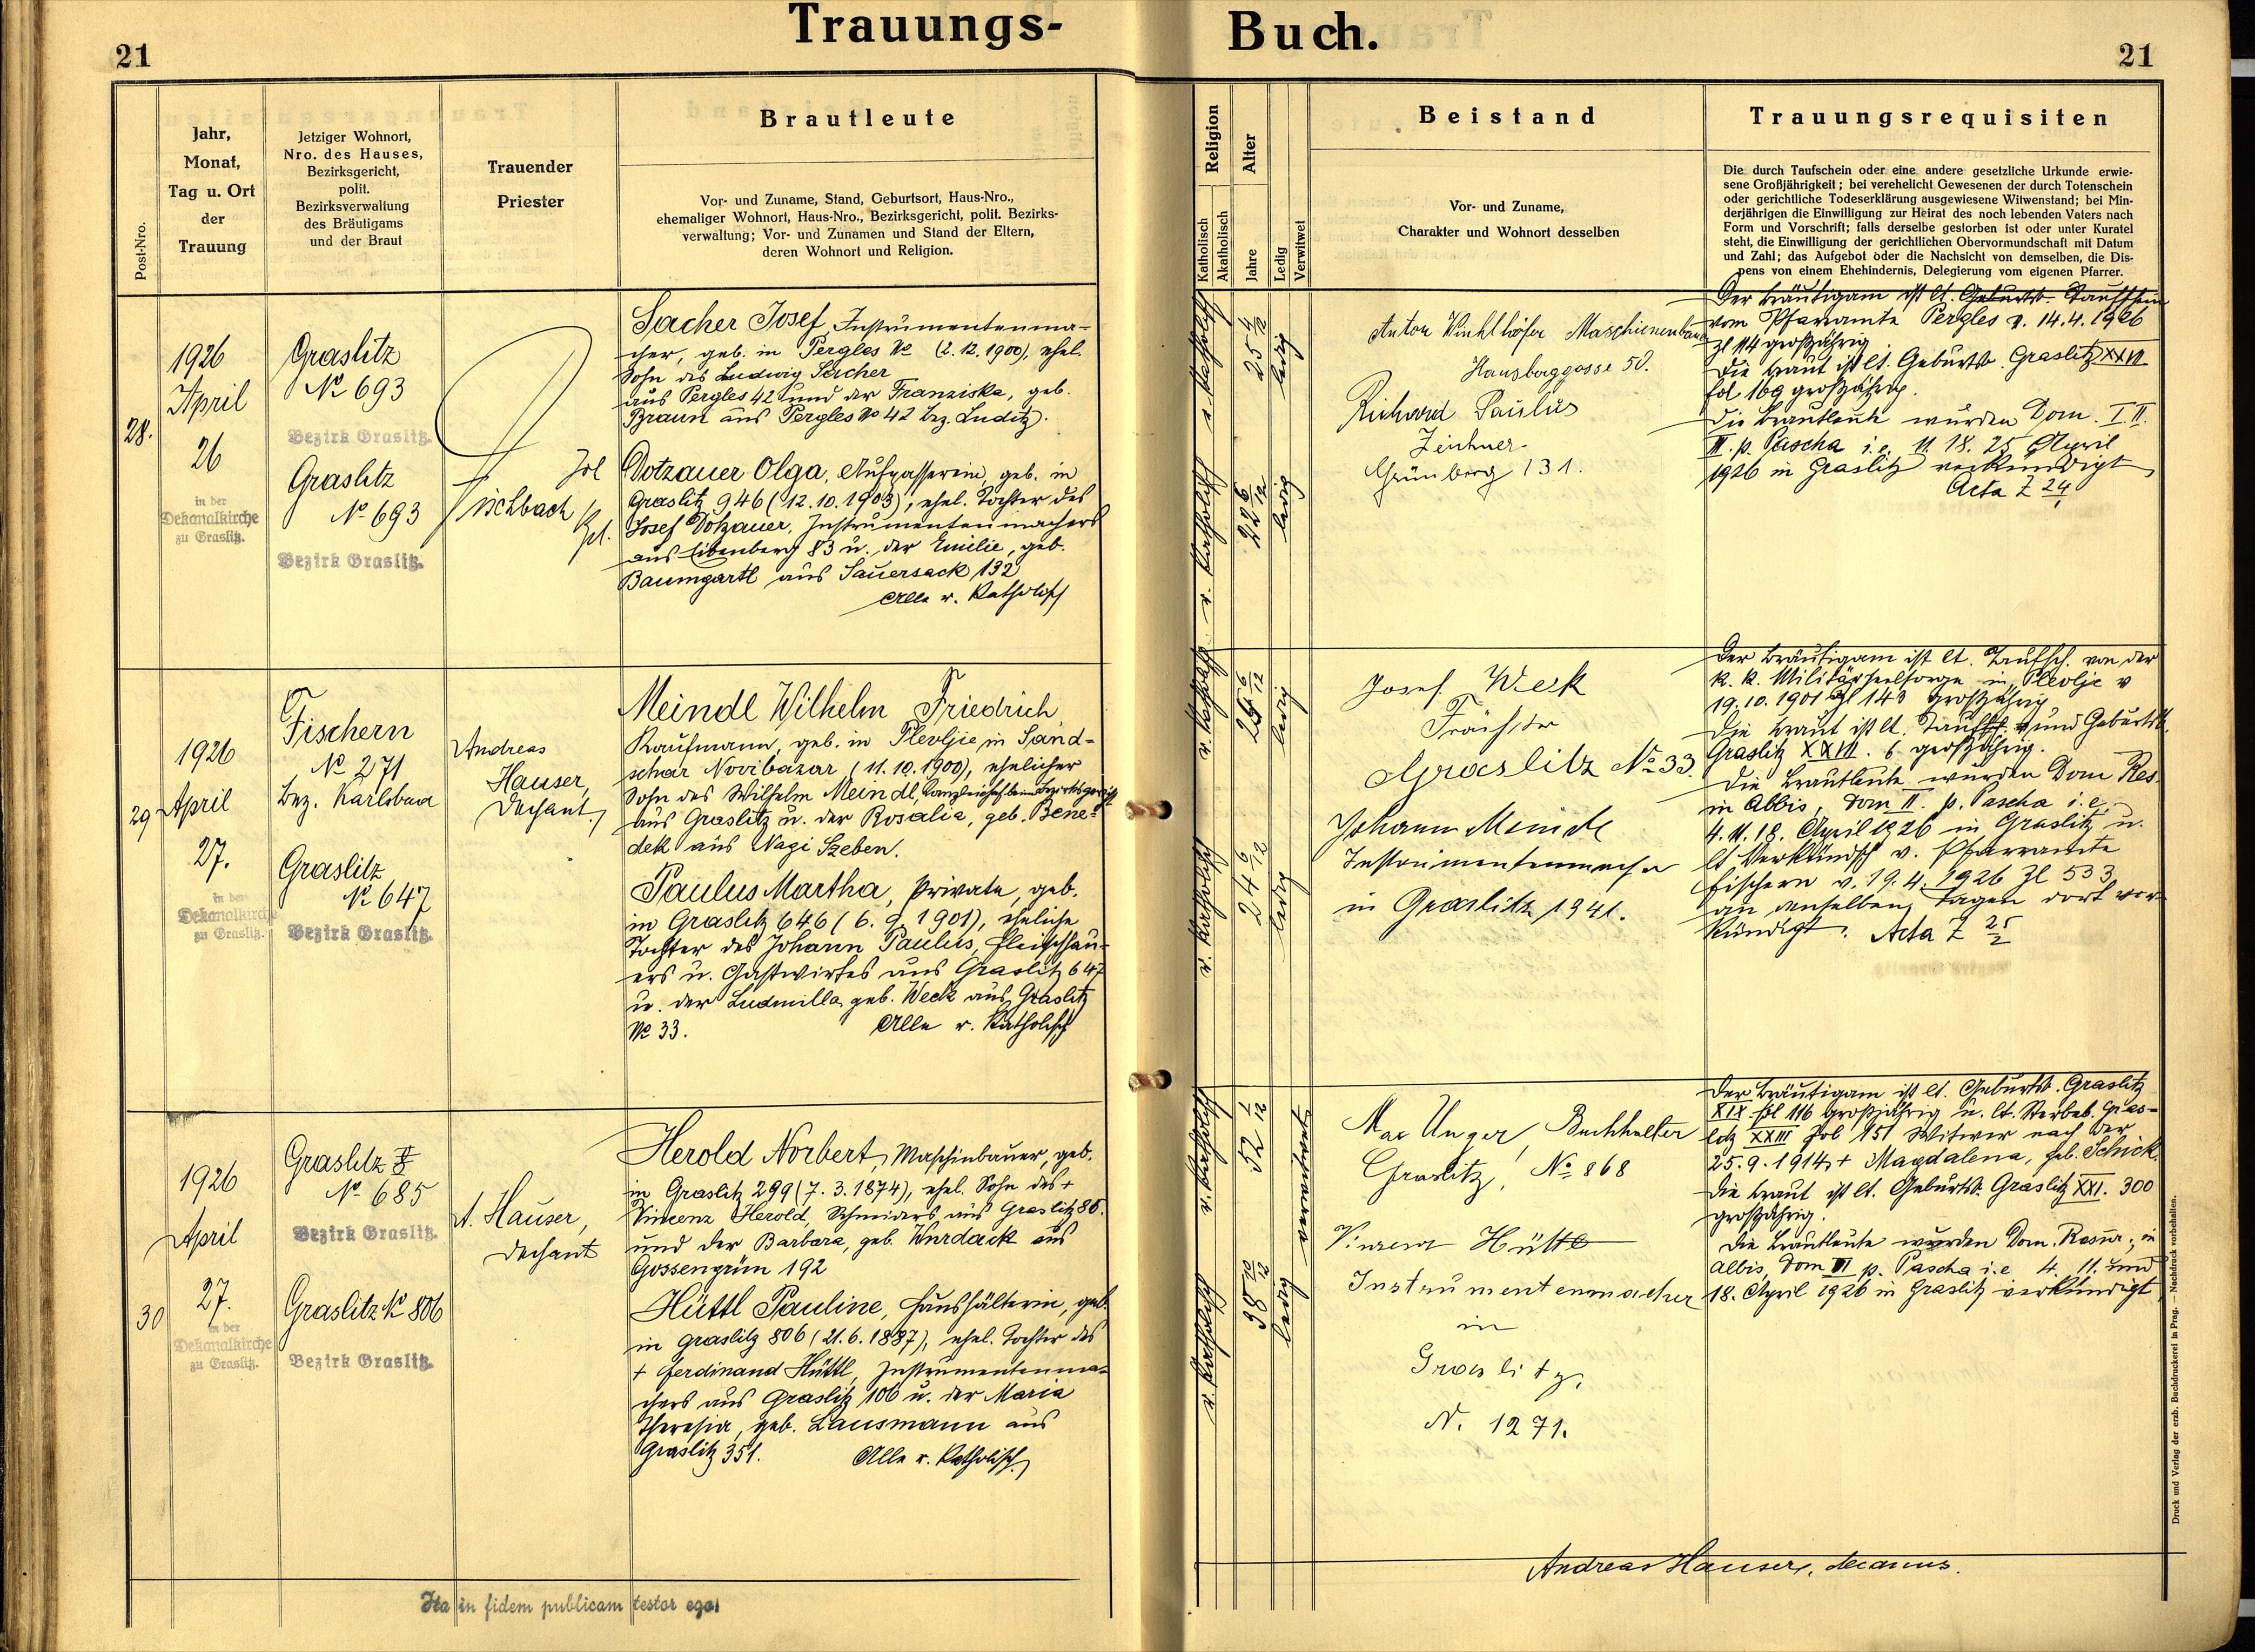 Trauungs-
21
Post-Nro.
Jahr,
Monat,
Tag u. Ort
der
Trauung
Jetziger Wohnort,
Nro. des Hauses,
Bezirksgericht,
polit.
Bezirksverwaltung
des Bräutigams
und der Braut
Trauender
Priester
Brautleute
Vor- und Zuname, Stand, Geburtsort, Haus-Nro.,
ehemaliger Wohnort, Haus-Nro., Bezirksgericht, polit. Bezirks-
verwaltung; Vor- und Zunamen und Stand der Eltern,
deren Wohnort und Religion.
28.
1926
April
26
in der
Dekanalkirche
zu Graslitz.
Graslitz
No 693
Bezirk Graslitz.
Graslitz
No 693
Bezirk Graslitz.
Fischbach
Sacher Josef, Instrumentenma-
cher, geb. in Pergles No (2. 12. 1900), ehel.
Sohn des Ludwig Sacher
aus Pergles 42 und der Franziska, geb.
Braun aus Pergles No 42 Bez. Luditz.
Dotzauer Olga, Aufpasserin, geb. in
Graslitz 946 (12. 10. 1903), ehel. Tochter des
Josef Dotzauer, Instrumentenmachers
aus Eibenberg 83 u. der Emilie, geb.
Baumgartl aus Sauersack 132
Alle r. katholisch
29
1926
April
27.
in der
Dekanalkirche
zu Graslitz.
Fischern
No 271
Bez. Karlsbad
Graslitz
No 647
Bezirk Graslitz.
Andreas
Hauser,
Dechant.
Meindl Wilhelm Friedrich,
Kaufmann, geb. in Plevlje in Sand-
schar Novibazar (11. 10. 1900), ehelicher
Sohn des Wilhelm Meindl, Kanzleichef beim Bezirksgericht
aus Graslitz u. der Rosalia, geb. Bene-
dek aus Nagi Szeben.
Paulus Martha, Private, geb.
in Graslitz 646 (6. 9. 1901), eheliche
Tochter des Johann Paulus, Fleischhau-
ers u. Gastwirtes aus Graslitz 647
u. der Ludmilla geb. Weck aus Graslitz
No 33.
Alle r. katholisch
30
1926
April
27.
in der
Dekanalkirche
zu Graslitz.
Graslitz
No 685
Bezirk Graslitz.
Graslitz No 806
Bezirk Graslitz.
A. Hauser,
Dechant
Herold Norbert, Maschinbauer, geb.
in Graslitz 299 (7. 3. 1874), ehel. Sohn des +
Vincenz Herold, Schneiders aus Graslitz 86.
und der Barbara, geb. Wurdack aus
Gossengrün 192
Hüttl Pauline, Haushälterin, geb.
in Graslitz 806 (21. 6. 1887), ehel. Tochter des
+ Ferdinand Hüttl, Instrumentenma-
chers aus Graslitz 106 u. der Maria
Theresia, geb. Lausmann aus
Graslitz 351.
Alle r. katholisch
Ita in fidem publicam testor ego:
Buch.
21
Religion
Katholisch
Akatholisch
Alter
Jahre
Ledig
Verwitwet
Beistand
Vor- und Zuname,
Charakter und Wohnort desselben
Trauungsrequisiten
Die durch Taufschein oder eine andere gesetzliche Urkunde erwie-
sene Großjährigkeit; bei verehelicht Gewesenen der durch Totenschein
oder gerichtliche Todeserklärung ausgewiesene Witwenstand; bei Min-
derjährigen die Einwilligung zur Heirat des noch lebenden Vaters nach
Form und Vorschrift; falls derselbe gestorben ist oder unter Kuratel
steht, die Einwilligung der gerichtlichen Obervormundschaft mit Datum
und Zahl; das Aufgebot oder die Nachsicht von demselben, die Dis-
pens von einem Ehehindernis, Delegierung vom eigenen Pfarrer.
r. katholisch
25 4/12
ledig
r. katholisch
22 6/12
ledig
Anton Winkelhöfer Maschienenbauer
Hausberggasse 58.
Richard Paulus
Zeichner
Grünberg 131.
Der Bräutigam ist lt. Geburts. Taufschein
vom Pfarramte Pergles v. 14. 4. 1926
Zl 114 großjährig
Die Braut ist lt. Geburtsb. Graslitz XXVI
fol 169 großjährig.
Die Brautleute wurden Dom. I. II.
III. p. Pascha i. e. 11. 18. 25 April
1926 in Graslitz verkündigt
Acta Z 24
r. katholisch
25 6/12
ledig
r. katholisch
24 6/12
ledig
Josef Weck
Graslitz No 33.
Johann Meindl
Instrumentenmacher
in Graslitz 1941.
Der Bräutigam ist lt. Taufsch. von der
k. k. Militärseelsorge in Plevlje v
19. 10. 1901 Zl 143 großjährig
Die Braut ist lt. Taufsch. und Geburtsb.
Graslitz XXVI. 6 großjährig.
Die Brautleute wurden Dom Res.
in Albis, Dom II. p. Pascha i. e.
4. 11. 18. April 1926 in Graslitz u.
lt Verkündsch v. Pfarramte
Fischern v. 19. 4. 1926 Zl 533
an denselben Tagen dort ver-
kündigt. Acta Z 25
r. katholisch
52 1/12
verwitwet
r. katholisch
38 10/12
ledig
Max Unger, Buchhalter
Graslitz, No 868
Vinzenz Hüttl
Instrumentenmacher
in
Graslitz,
N. 1271.
Der Bräutigam ist lt. Geburtsb. Graslitz
XIX fol 116 großjährig u. lt. Sterbeb. Gras-
litz XXIII fol 151 Witwer nach der
25. 9. 1914 + Magdalena, geb. Schick.
Die Braut ist lt. Geburtsb. Graslitz XXI. 300
großjährig.
Die Brautleute wurden Dom. Resur., in
Albis, Dom II p. Pascha i. e 4. 11. und
18. April 1926 in Graslitz verkündigt
Andreas Hauser, decanus.
Druck und Verlag der erzb. Buchdruckerei in Prag. — Nachdruck vorbehalten.